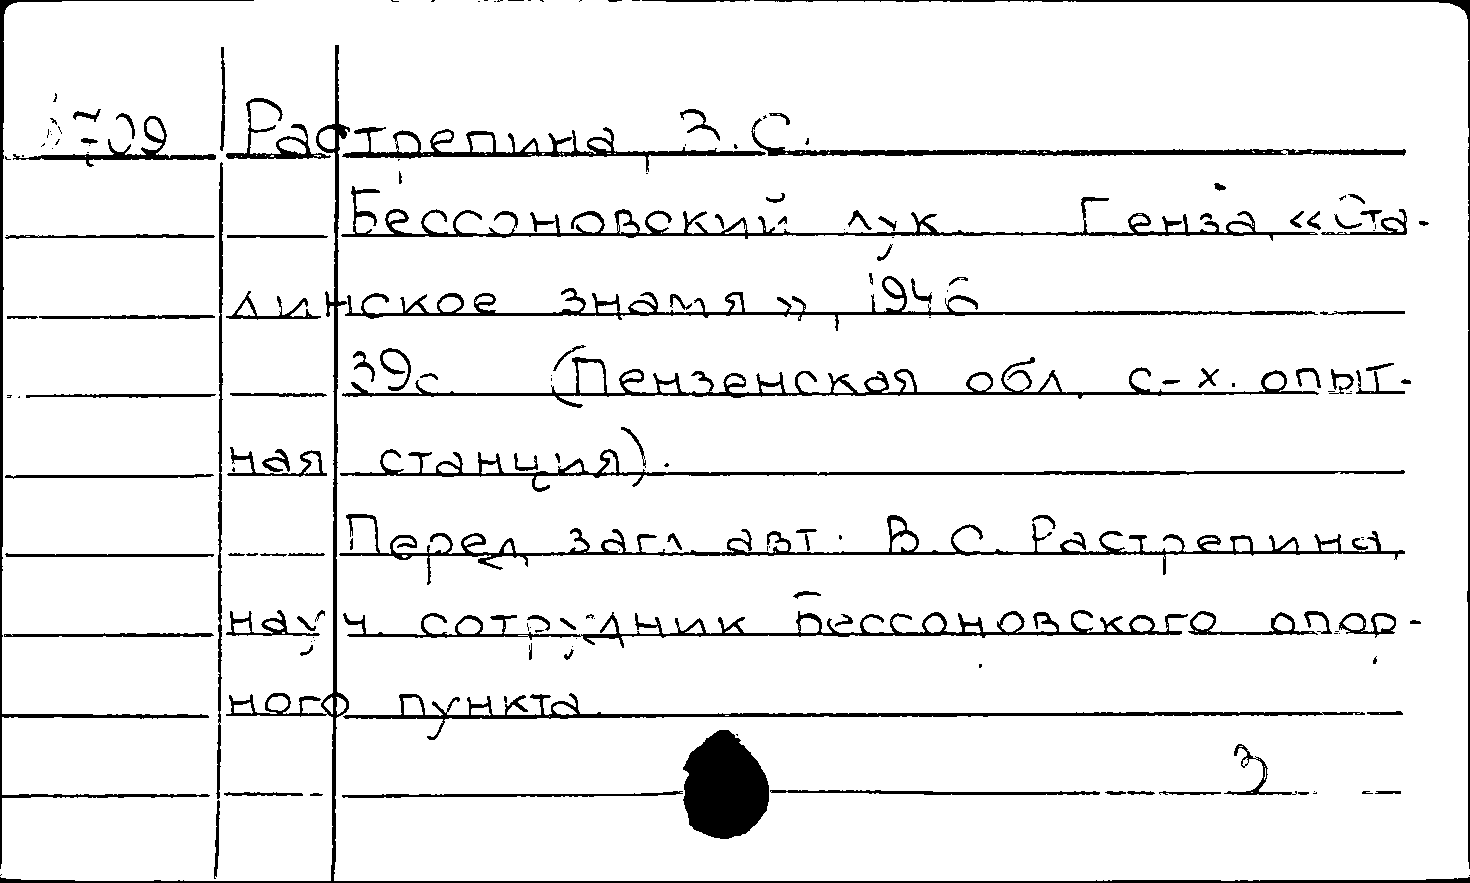 Растрепина, З.С.
Бессоновский лук. Пенза, «Ста-
линское знамя», 1946
39с. (Пензенская обл. с-х. опыт-
ная станция).
Перед загл. авт. В.С. Растрепина,
науч. сотрудник Бессоновского опор-
ного пункта.
3